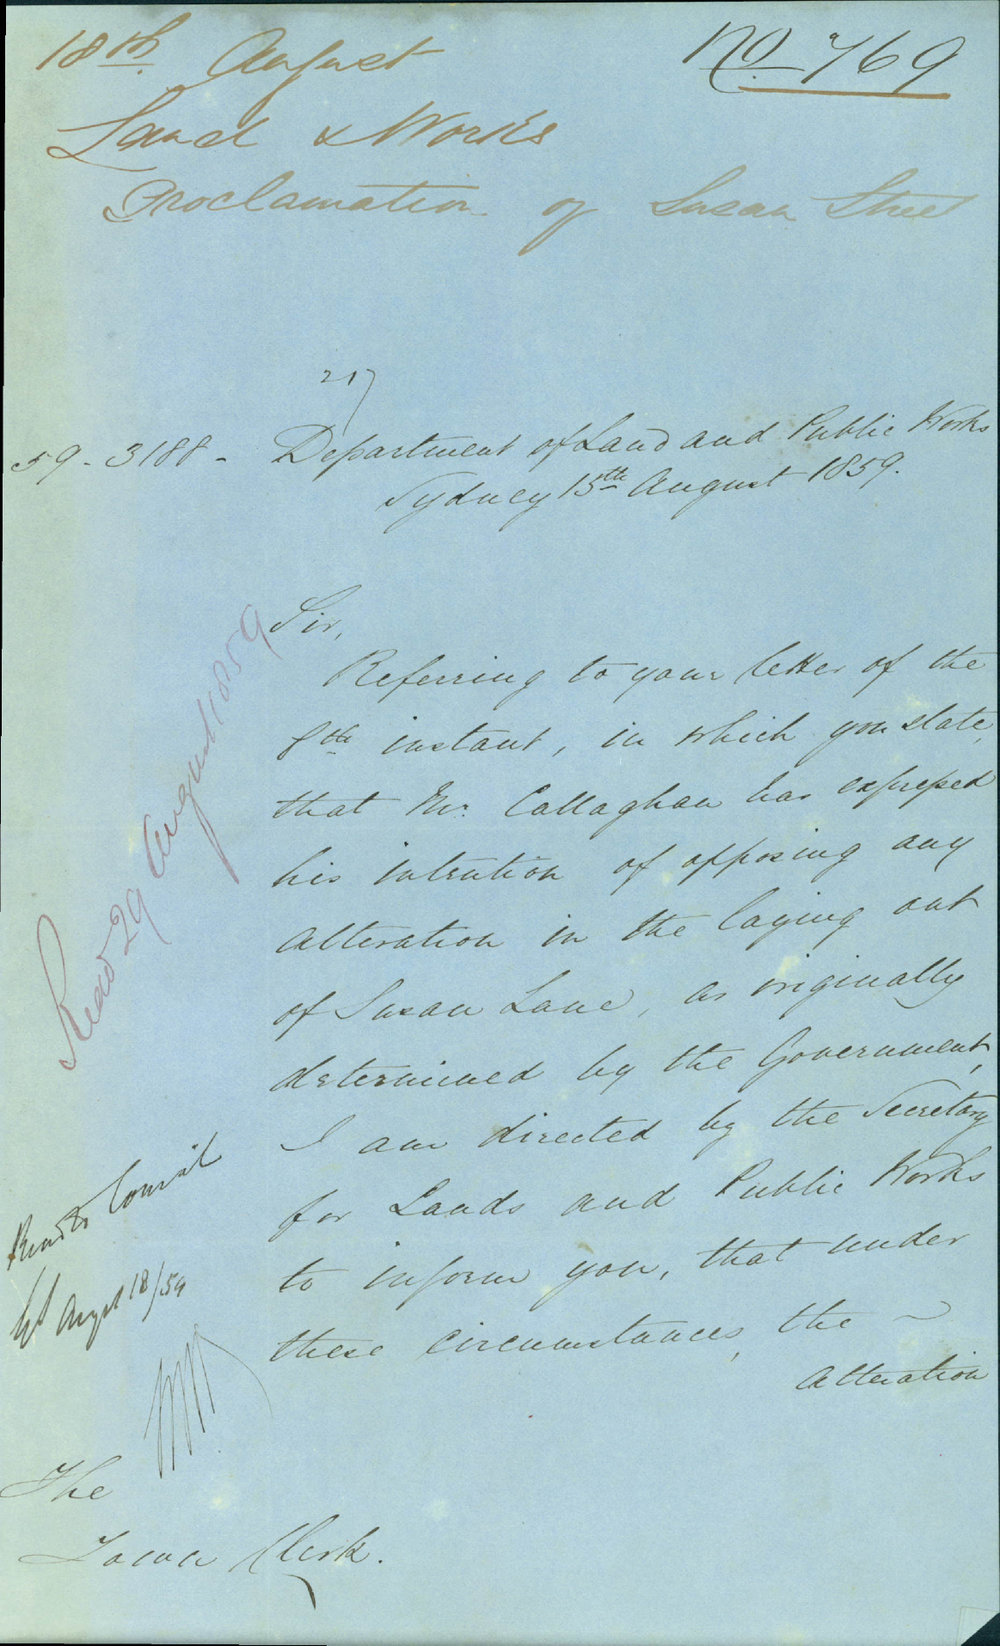 18th. August
No 769
Land & Works
Proclamation of Susan Street
217
59-3188-
Department of Land and Public Works
Sydney 15th August 1859.
Sir,
Referring to your letter of the
8th instant, in which you state,
that Mr. Callaghan has expressed
his intention of opposing any
alteration in the laying out
of Susan Lane, as originally
determined by the Government,
I am directed by the Secretary
for Lands and Public Works
to inform you, that under
these circumstances, the
alteration
Read 29 August 1859
Read to Council
Augst 18/59
The
Town Clerk.